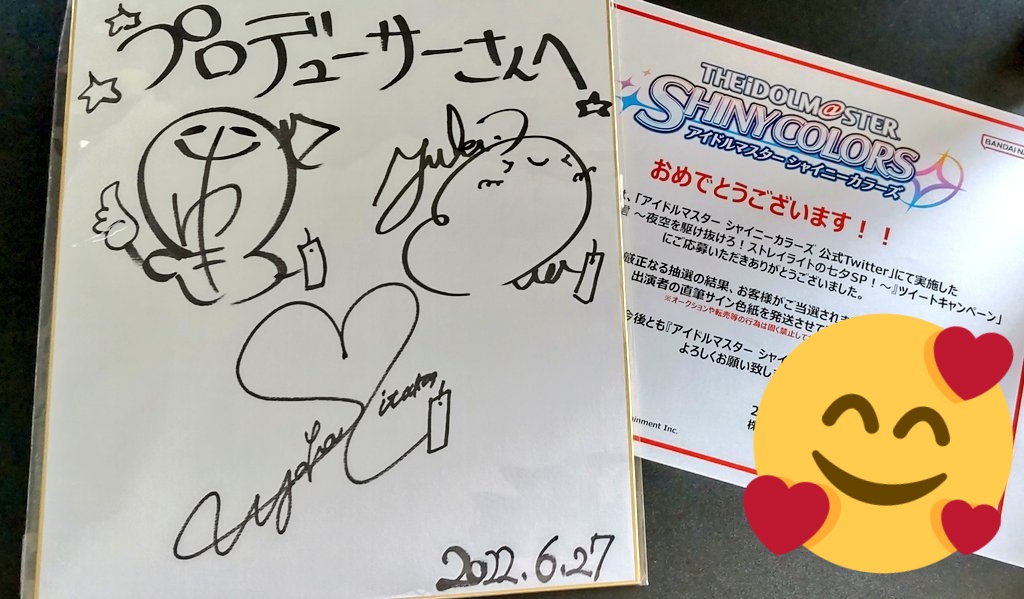 プロデューサーさんへ
Yuki
2022.6.27
THE iDOLM@STER
SHINYCOLORS
アイドルマスター シャイニーカラーズ
BANDAI NA
おめでとうございます！！
、「アイドルマスター シャイニーカラーズ 公式Twitter」にて実施した
～夜空を駆け抜けろ！ストレイライトの七夕SP！～』ツイートキャンペーン」
にご応募いただきありがとうございました。
厳正なる抽選の結果、お客様がご当選されま
出演者の直筆サイン色紙を発送させて
※オークションや転売等の行為は固く禁止して
今後とも『アイドルマスター シャイ
よろしくお願い致し
2
株
ainment Inc.